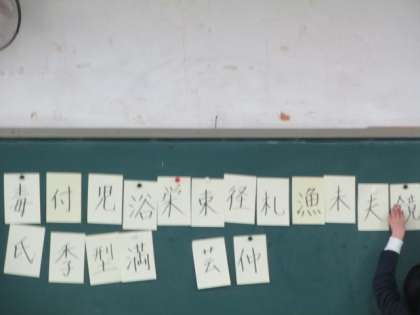 毒付児浴栄束径札漁未夫鏡
氏季型満芸仲